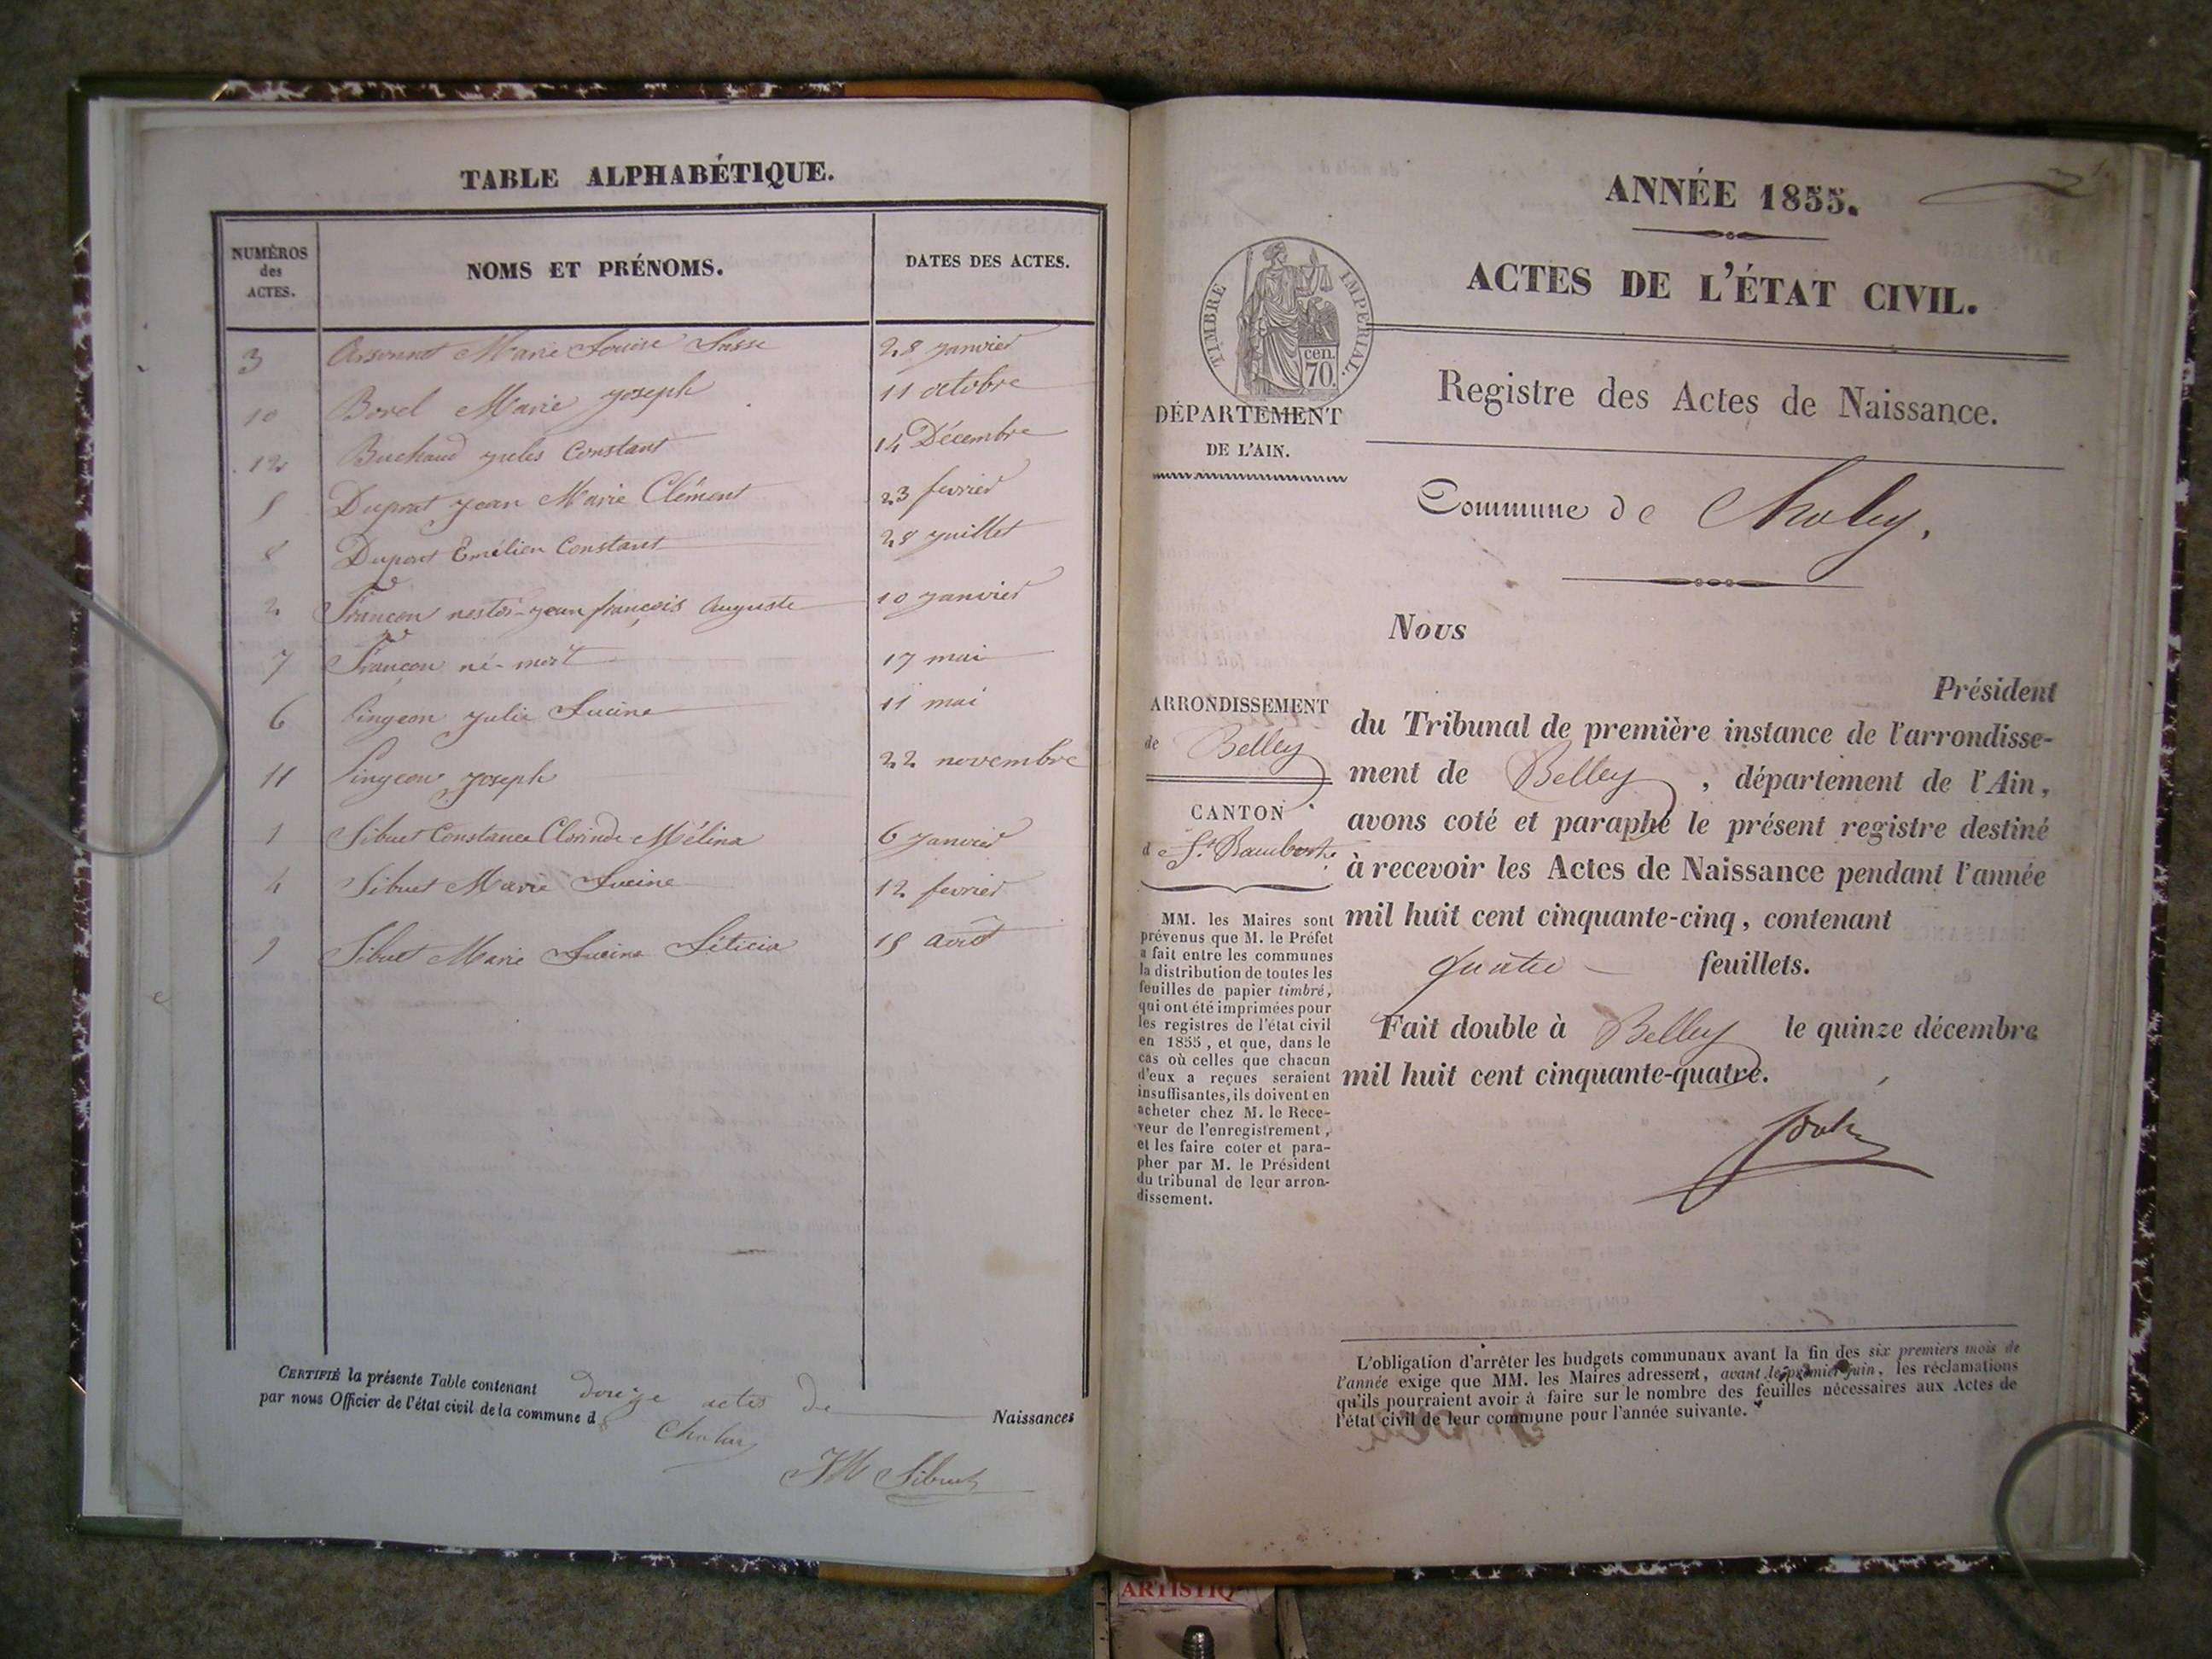 TABLE ALPHABÉTIQUE.
NUMÉROS des ACTES. NOMS ET PRÉNOMS. DATES DES ACTES.
3 Marie Louise 28 janvier
10 Borel Marie Joseph 11 octobre
12 Buchaud jules Constant 14 Décembre
5 Dupont Jean Marie Clément 23 fevrier
8 Dupont Emélien Constant 28 juillet
2 Françon nestor-jean françois Auguste 10 janvier
7 Françon né-mort 17 mai
6 Lingeon Julie Lucine 11 mai
11 Lingeon Joseph 22 novembre
1 Sibuet Constance Clorinde Mélina 6 janvier
4 Sibuet Marie Lucine 12 fevrier
9 Sibuet Marie Lucine Léticia 15 août
CERTIFIÉ la présente Table contenant douze actes de Naissances
par nous Officier de l'état civil de la commune de Chaley
JM Sibuet
ANNÉE 1855.
ACTES DE L'ÉTAT CIVIL.
TIMBRE IMPÉRIAL.
cen.
70.
Registre des Actes de Naissance.
DÉPARTEMENT
DE L'AIN.
Commune de Chaley.
Nous
Président
du Tribunal de première instance de l'arrondisse-
ment de Belley, département de l'Ain,
avons coté et paraphé le présent registre destiné
à recevoir les Actes de Naissance pendant l'année
mil huit cent cinquante-cinq, contenant
quatre feuillets.
Fait double à Belley le quinze décembre
mil huit cent cinquante-quatre.
ARRONDISSEMENT
de Belley
CANTON
de St Rambert.
MM. les Maires sont
prévenus que M. le Préfet
a fait entre les communes
la distribution de toutes les
feuilles de papier timbré,
qui ont été imprimées pour
les registres de l'état civil
en 1855, et que, dans le
cas où celles que chacun
d'eux a reçues seraient
insuffisantes, ils doivent en
acheter chez M. le Rece-
veur de l'enregistrement,
et les faire coter et para-
pher par M. le Président
du tribunal de leur arron-
dissement.
L'obligation d'arrêter les budgets communaux avant la fin des six premiers mois de
l'année exige que MM. les Maires adressent, avant le premier juin, les réclamations
qu'ils pourraient avoir à faire sur le nombre des feuilles nécessaires aux Actes de
l'état civil de leur commune pour l'année suivante.
ARTISTIQ